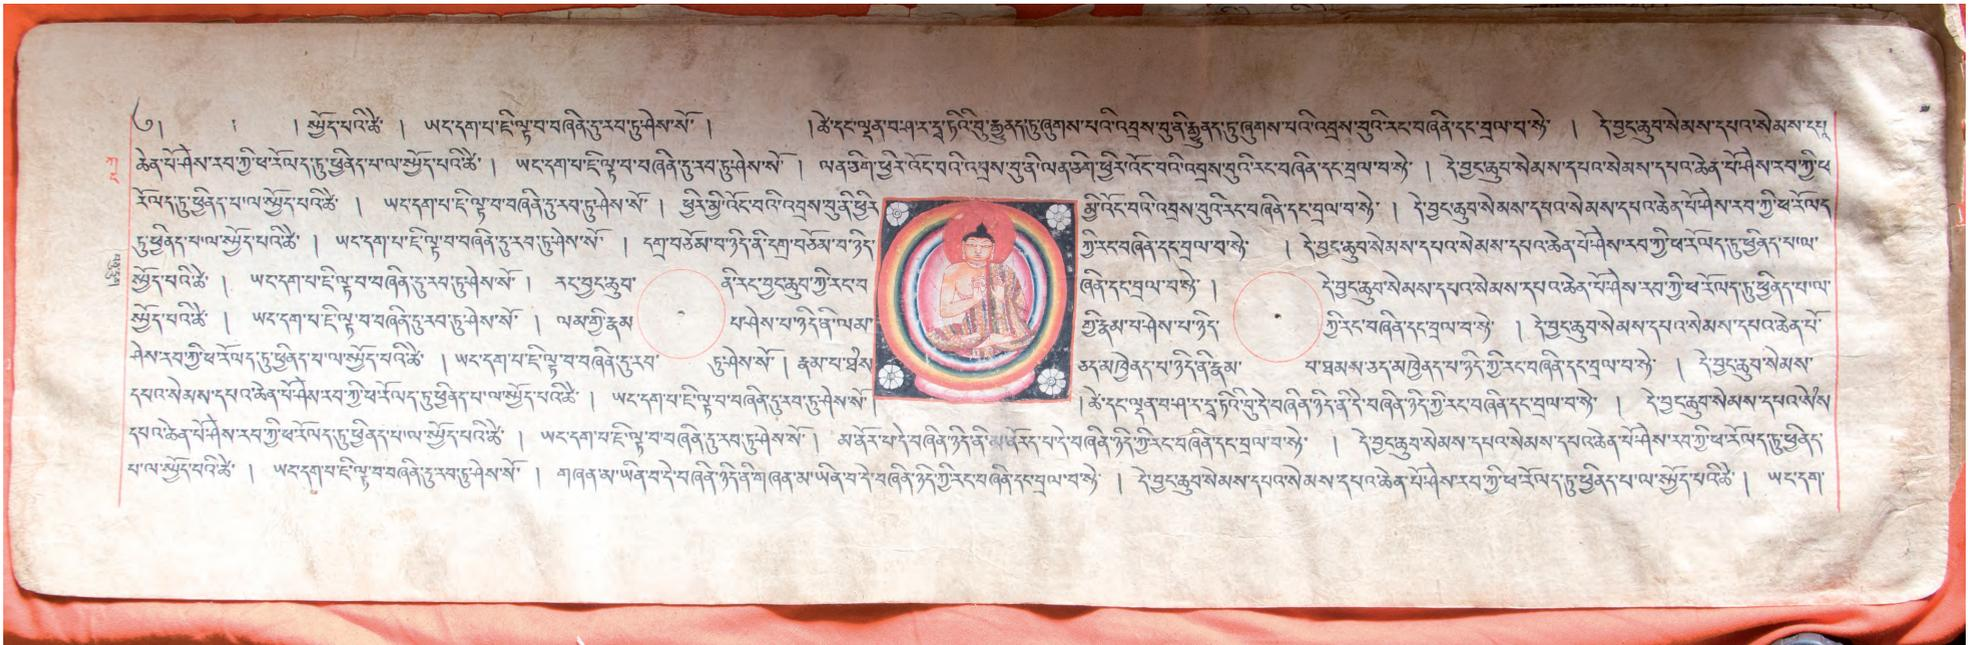 ༄། ། །སྤྱོད་པའི་ཚེ། ཡང་དག་པ་ཇི་ལྟ་བ་བཞིན་དུ་རབ་ཏུ་ཤེས་སོ། །ཚེ་དང་ལྡན་བ་ཤ་ར་དྭ་ཏིའི་བུ་རྒྱུནད་ཏུ་ཞུགས་པའི་འབྲས་བུ་ནི་རྒྱུནད་ཏུ་ཞུགས་པའི་འབྲས་བུའི་རང་བཞིན་དང་བྲལ་བ་སྟེ། དེ་བྱང་ཆུབ་སེམས་དཔའ་སེམས་དཔའ་
ཆེན་པོ་ཤེས་རབ་ཀྱི་ཕ་རོལད་ཏུ་ཕྱིནད་པ་ལ་སྤྱོད་པའི་ཚེ། ཡང་དག་པ་ཇི་ལྟ་བ་བཞིན་དུ་རབ་ཏུ་ཤེས་སོ། ལན་ཅིག་ཕྱིར་འོང་བའི་འབྲས་བུ་ནི་ལན་ཅིག་ཕྱིར་འོང་བའི་འབྲས་བུའི་རང་བཞིན་དང་བྲལ་བ་སྟེ། དེ་བྱང་ཆུབ་སེམས་དཔའ་སེམས་དཔའ་ཆེན་པོ་ཤེས་རབ་ཀྱི་ཕ་
རོལད་ཏུ་ཕྱིནད་པ་ལ་སྤྱོད་པའི་ཚེ། ཡང་དག་པ་ཇི་ལྟ་བ་བཞིན་དུ་རབ་ཏུ་ཤེས་སོ། ཕྱིར་མྱི་འོང་བའི་འབྲས་བུ་ནི་ཕྱིར་མྱི་འོང་བའི་འབྲས་བུའི་རང་བཞིན་དང་བྲལ་བ་སྟེ། དེ་བྱང་ཆུབ་སེམས་དཔའ་སེམས་དཔའ་ཆེན་པོ་ཤེས་རབ་ཀྱི་ཕ་རོལད་
ཏུ་ཕྱིནད་པ་ལ་སྤྱོད་པའི་ཚེ། ཡང་དག་པ་ཇི་ལྟ་བ་བཞིན་དུ་རབ་ཏུ་ཤེས་སོ། དགྲ་བཅོམ་བ་ཉིད་ནི་དགྲ་བཅོམ་བ་ཉིད་ཀྱི་རང་བཞིན་དང་བྲལ་བ་སྟེ། དེ་བྱང་ཆུབ་སེམས་དཔའ་སེམས་དཔའ་ཆེན་པོ་ཤེས་རབ་ཀྱི་ཕ་རོལད་ཏུ་ཕྱིནད་པ་ལ་
སྤྱོད་པའི་ཚེ། ཡང་དག་པ་ཇི་ལྟ་བ་བཞིན་དུ་རབ་ཏུ་ཤེས་སོ། རང་བྱང་ཆུབ་ནི་རང་བྱང་ཆུབ་ཀྱི་རང་བཞིན་དང་བྲལ་བ་སྟེ། དེ་བྱང་ཆུབ་སེམས་དཔའ་སེམས་དཔའ་ཆེན་པོ་ཤེས་རབ་ཀྱི་ཕ་རོལད་ཏུ་ཕྱིནད་པ་ལ་
སྤྱོད་པའི་ཚེ། ཡང་དག་པ་ཇི་ལྟ་བ་བཞིན་དུ་རབ་ཏུ་ཤེས་སོ། ལམ་གྱི་རྣམ་པ་ཤེས་པ་ཉིད་ནི་ལམ་ཀྱི་རྣམ་པ་ཤེས་པ་ཉིད་ཀྱི་རང་བཞིན་དང་བྲལ་བ་སྟེ། དེ་བྱང་ཆུབ་སེམས་དཔའ་སེམས་དཔའ་ཆེན་པོ་
ཤེས་རབ་ཀྱི་ཕ་རོལད་ཏུ་ཕྱིནད་པ་ལ་སྤྱོད་པའི་ཚེ། ཡང་དག་པ་ཇི་ལྟ་བ་བཞིན་དུ་རབ་ཏུ་ཤེས་སོ། རྣམ་པ་ཐམས་ཅད་མཁྱེནད་པ་ཉིད་ནི་རྣམ་པ་ཐམས་ཅད་མཁྱེནད་པ་ཉིད་ཀྱི་རང་བཞིན་དང་བྲལ་བ་སྟེ། དེ་བྱང་ཆུབ་སེམས་
དཔའ་སེམས་དཔའ་ཆེན་པོ་ཤེས་རབ་ཀྱི་ཕ་རོལད་ཏུ་ཕྱིནད་པ་ལ་སྤྱོད་པའི་ཚེ། ཡང་དག་པ་ཇི་ལྟ་བ་བཞིན་དུ་རབ་ཏུ་ཤེས་སོ། །ཚེ་དང་ལྡན་བ་ཤ་ར་དྭ་ཏིའི་བུ་དེ་བཞིན་ཉིད་ནི་དེ་བཞིན་ཉིད་ཀྱི་རང་བཞིན་དང་བྲལ་བ་སྟེ། དེ་བྱང་ཆུབ་སེམས་དཔའ་སེམས་
དཔའ་ཆེན་པོ་ཤེས་རབ་ཀྱི་ཕ་རོལད་ཏུ་ཕྱིནད་པ་ལ་སྤྱོད་པའི་ཚེ། ཡང་དག་པ་ཇི་ལྟ་བ་བཞིན་དུ་རབ་ཏུ་ཤེས་སོ། མ་ནོར་པ་དེ་བཞིན་ཉིད་ནི་མ་ནོརད་པ་དེ་བཞིན་ཉིད་ཀྱི་རང་བཞིན་དང་བྲལ་བ་སྟེ། དེ་བྱང་ཆུབ་སེམས་དཔའ་སེམས་དཔའ་ཆེན་པོ་ཤེས་རབ་ཀྱི་ཕ་རོལད་ཏུ་ཕྱིནད་
པ་ལ་སྤྱོད་པའི་ཚེ། ཡང་དག་པ་ཇི་ལྟ་བ་བཞིན་དུ་རབ་ཏུ་ཤེས་སོ། གཞན་མ་ཡིན་བ་དེ་བཞིན་ཉིད་ནི་གཞན་མ་ཡིན་བ་དེ་བཞིན་ཉིད་ཀྱི་རང་བཞིན་དང་བྲལ་བ་སྟེ། དེ་བྱང་ཆུབ་སེམས་དཔའ་སེམས་དཔའ་ཆེན་པོ་ཤེས་རབ་ཀྱི་ཕ་རོལད་ཏུ་ཕྱིནད་པ་ལ་སྤྱོད་པའི་ཚེ། ཡང་དག་